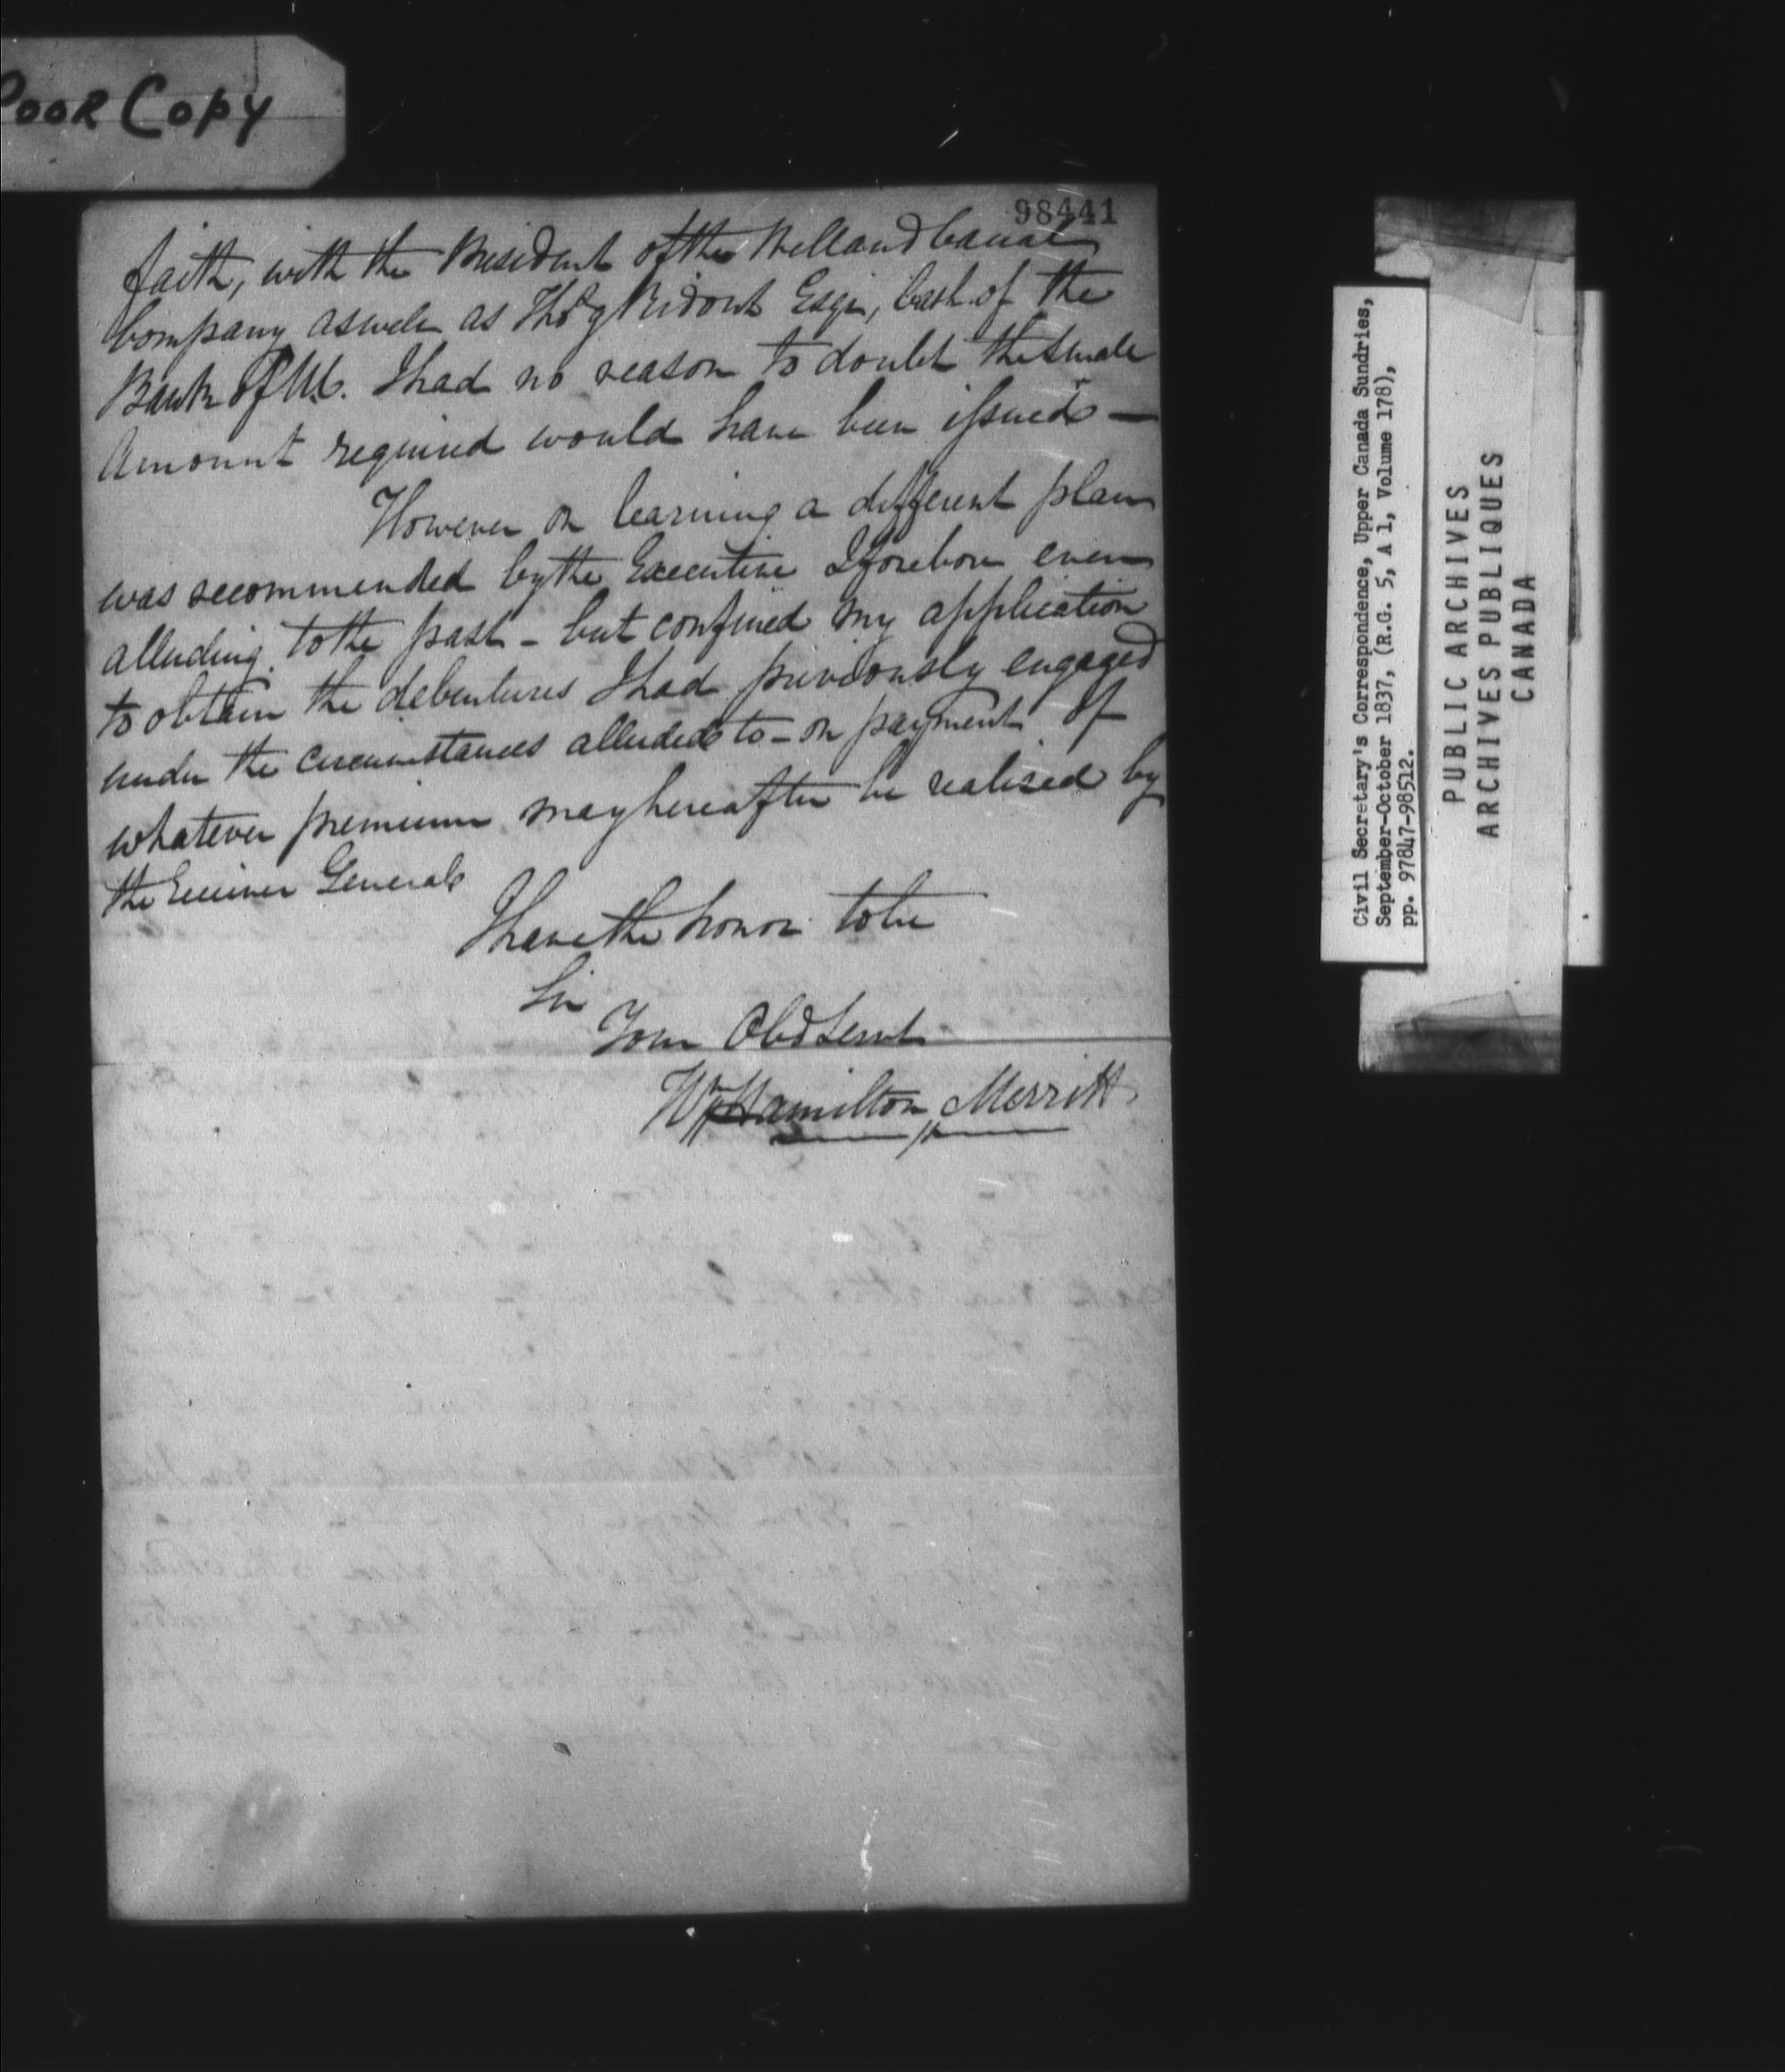 POOR COPY
98441
faith, with the President of the Welland Canal
Company as well as Thos G Ridout Esqr, Cash. of the
Bank of U.C. I had no reason to doubt the small
Amount required would have been issued —
However on learning a different plan
was recommended by the Executive I forebore even
alluding to the past - but confined my application
to obtain the debentures I had previously engaged
under the circumstances alluded to - on payment of
whatever premium may hereafter be realised by
the Receiver General
I have the honor to be
Sir
Your Obd Servt
Wm Hamilton Merritt
Civil Secretary's Correspondence, Upper Canada Sundries,
September-October 1837, (R.G. 5, A 1, Volume 178),
pp. 97847-98512.
PUBLIC ARCHIVES
ARCHIVES PUBLIQUES
CANADA